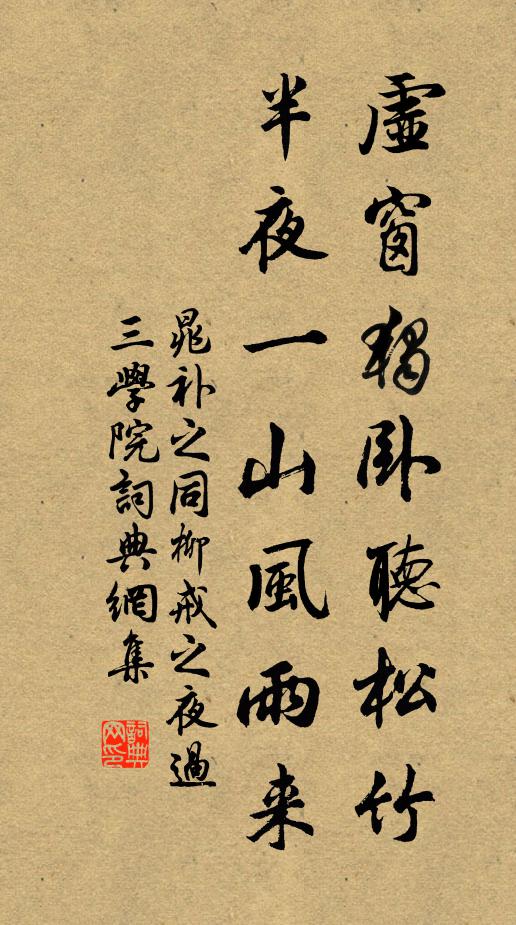 虛窗獨卧聽松竹
半夜一山風雨来
晁补之同柳戒之夜過
三學院詞典網集
詞典
网印